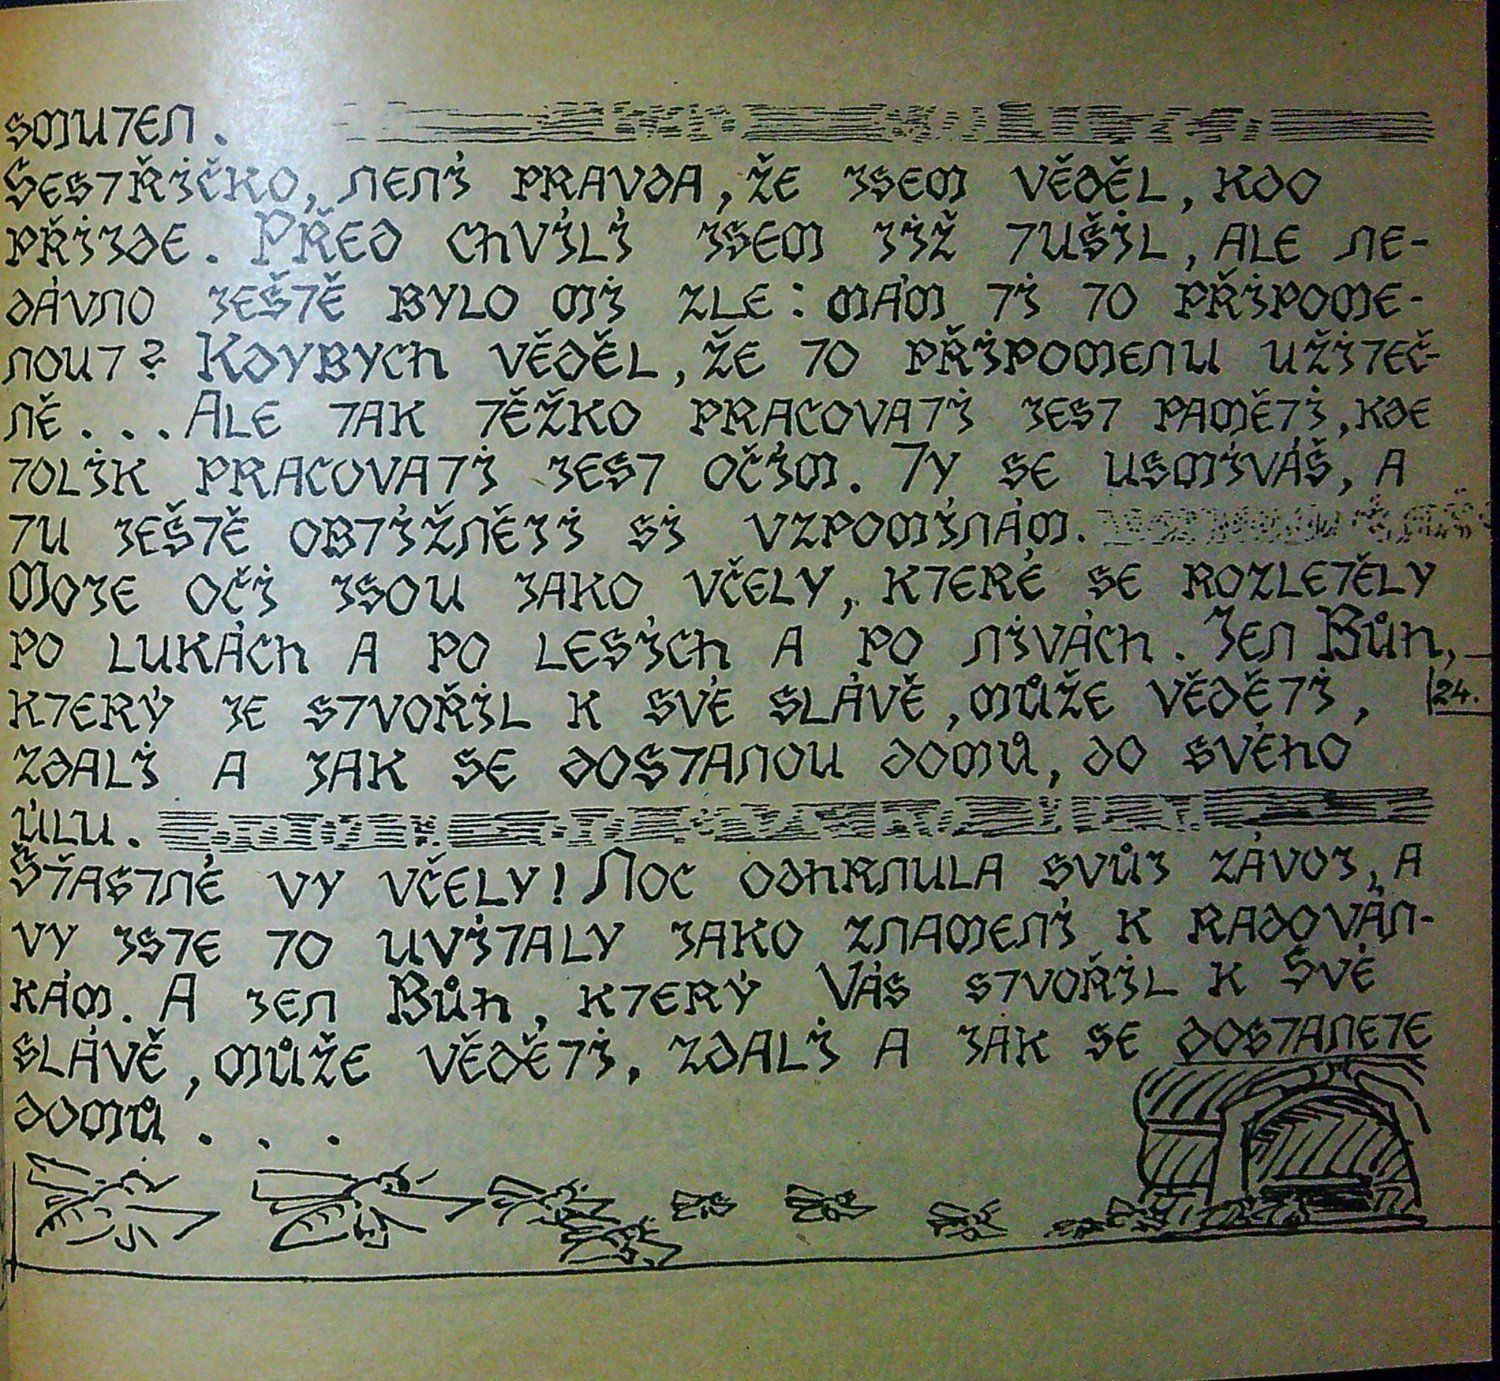 smuten.
Sestřičko, není pravda, že jsem věděl, kdo
přijde. Před chvílí jsem již tušil, ale ne-
dávno ještě bylo mi zle: mám ti to připome-
nout? Kdybych věděl, že to připomenu užiteč-
ně... Ale tak těžko pracovati jest paměti, kde
tolik pracovati jest očím. Ty se usmíváš, a
tu ještě obtížněji si vzpomínám.
Moje oči jsou jako včely, které se rozletěly
po lukách a po lesích a po nivách. Jen Bůh,
který je stvořil k své slávě, může věděti,
zdali a jak se dostanou domů, do svého
úlu.
Šťastné vy včely! Noc odhrnula svůj závoj, a
vy jste to uvítaly jako znamení k radován-
kám. A jen Bůh, který Vás stvořil k Své
slávě, může věděti, zdali a jak se dostanete
domů...
24.